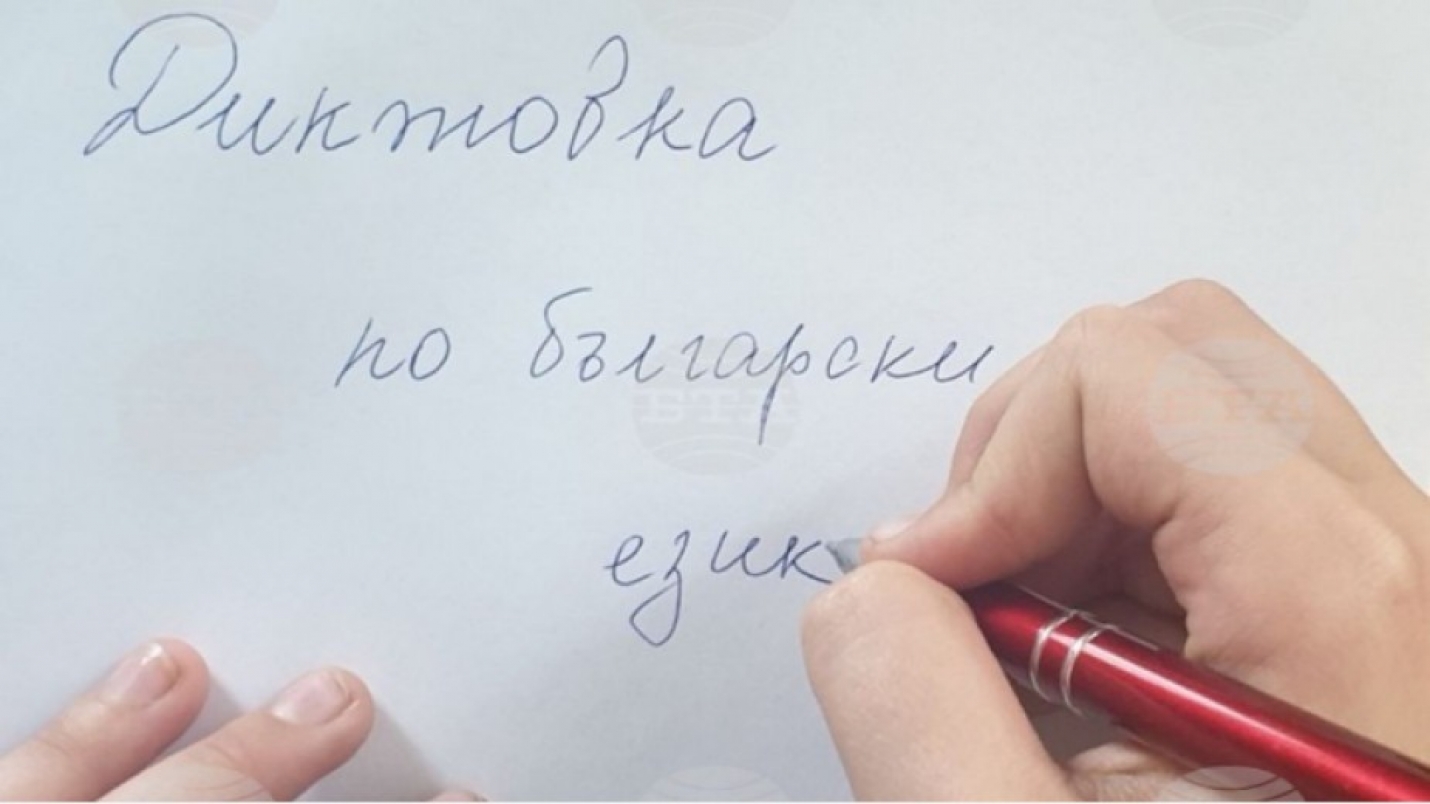 Диктовка
по български
език
БТА